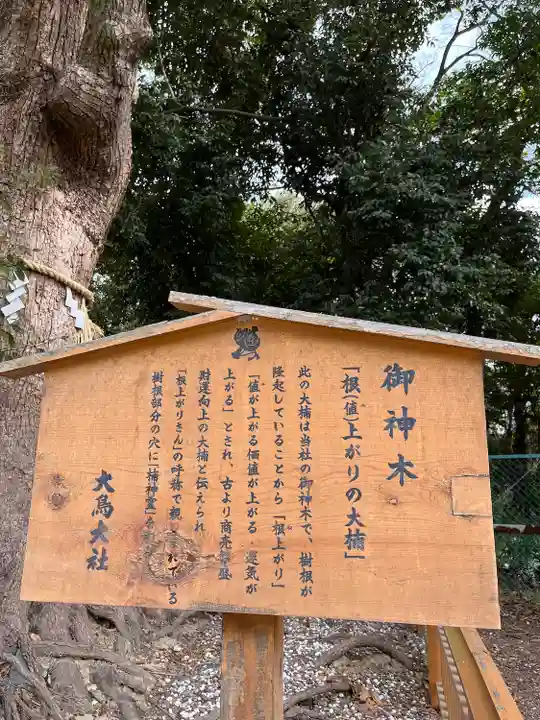 御神木
「根(値)上がりの大楠」
此の大楠は当社の御神木で、樹根が
隆起していることから「根上がり」
「値が上がる価値が上がる・運気が
上がる」とされ、古より商売繁盛
財運向上の大楠と伝えられ
「根上がりさん」の呼称で親 れている
樹根部分の穴に「楠神霊」
大鳥大社